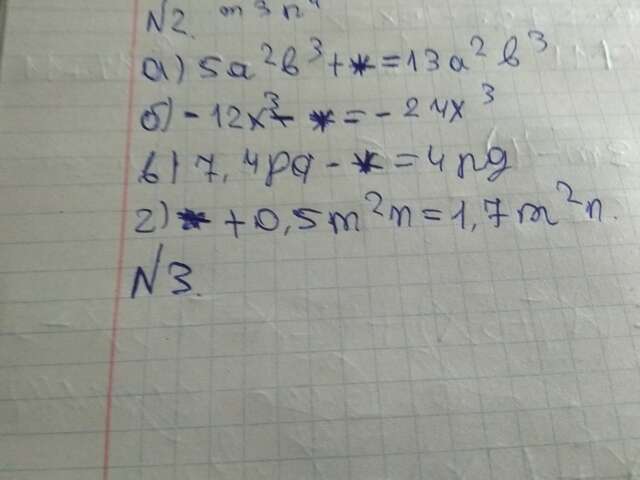 N2. m³n⁴
а) 5a²b³ + * = 13a²b³
б) - 12x³ - * = - 24x³
в) 7,4pq - * = 4pq
г) * + 0,5m²n = 1,7m²n.
N3.